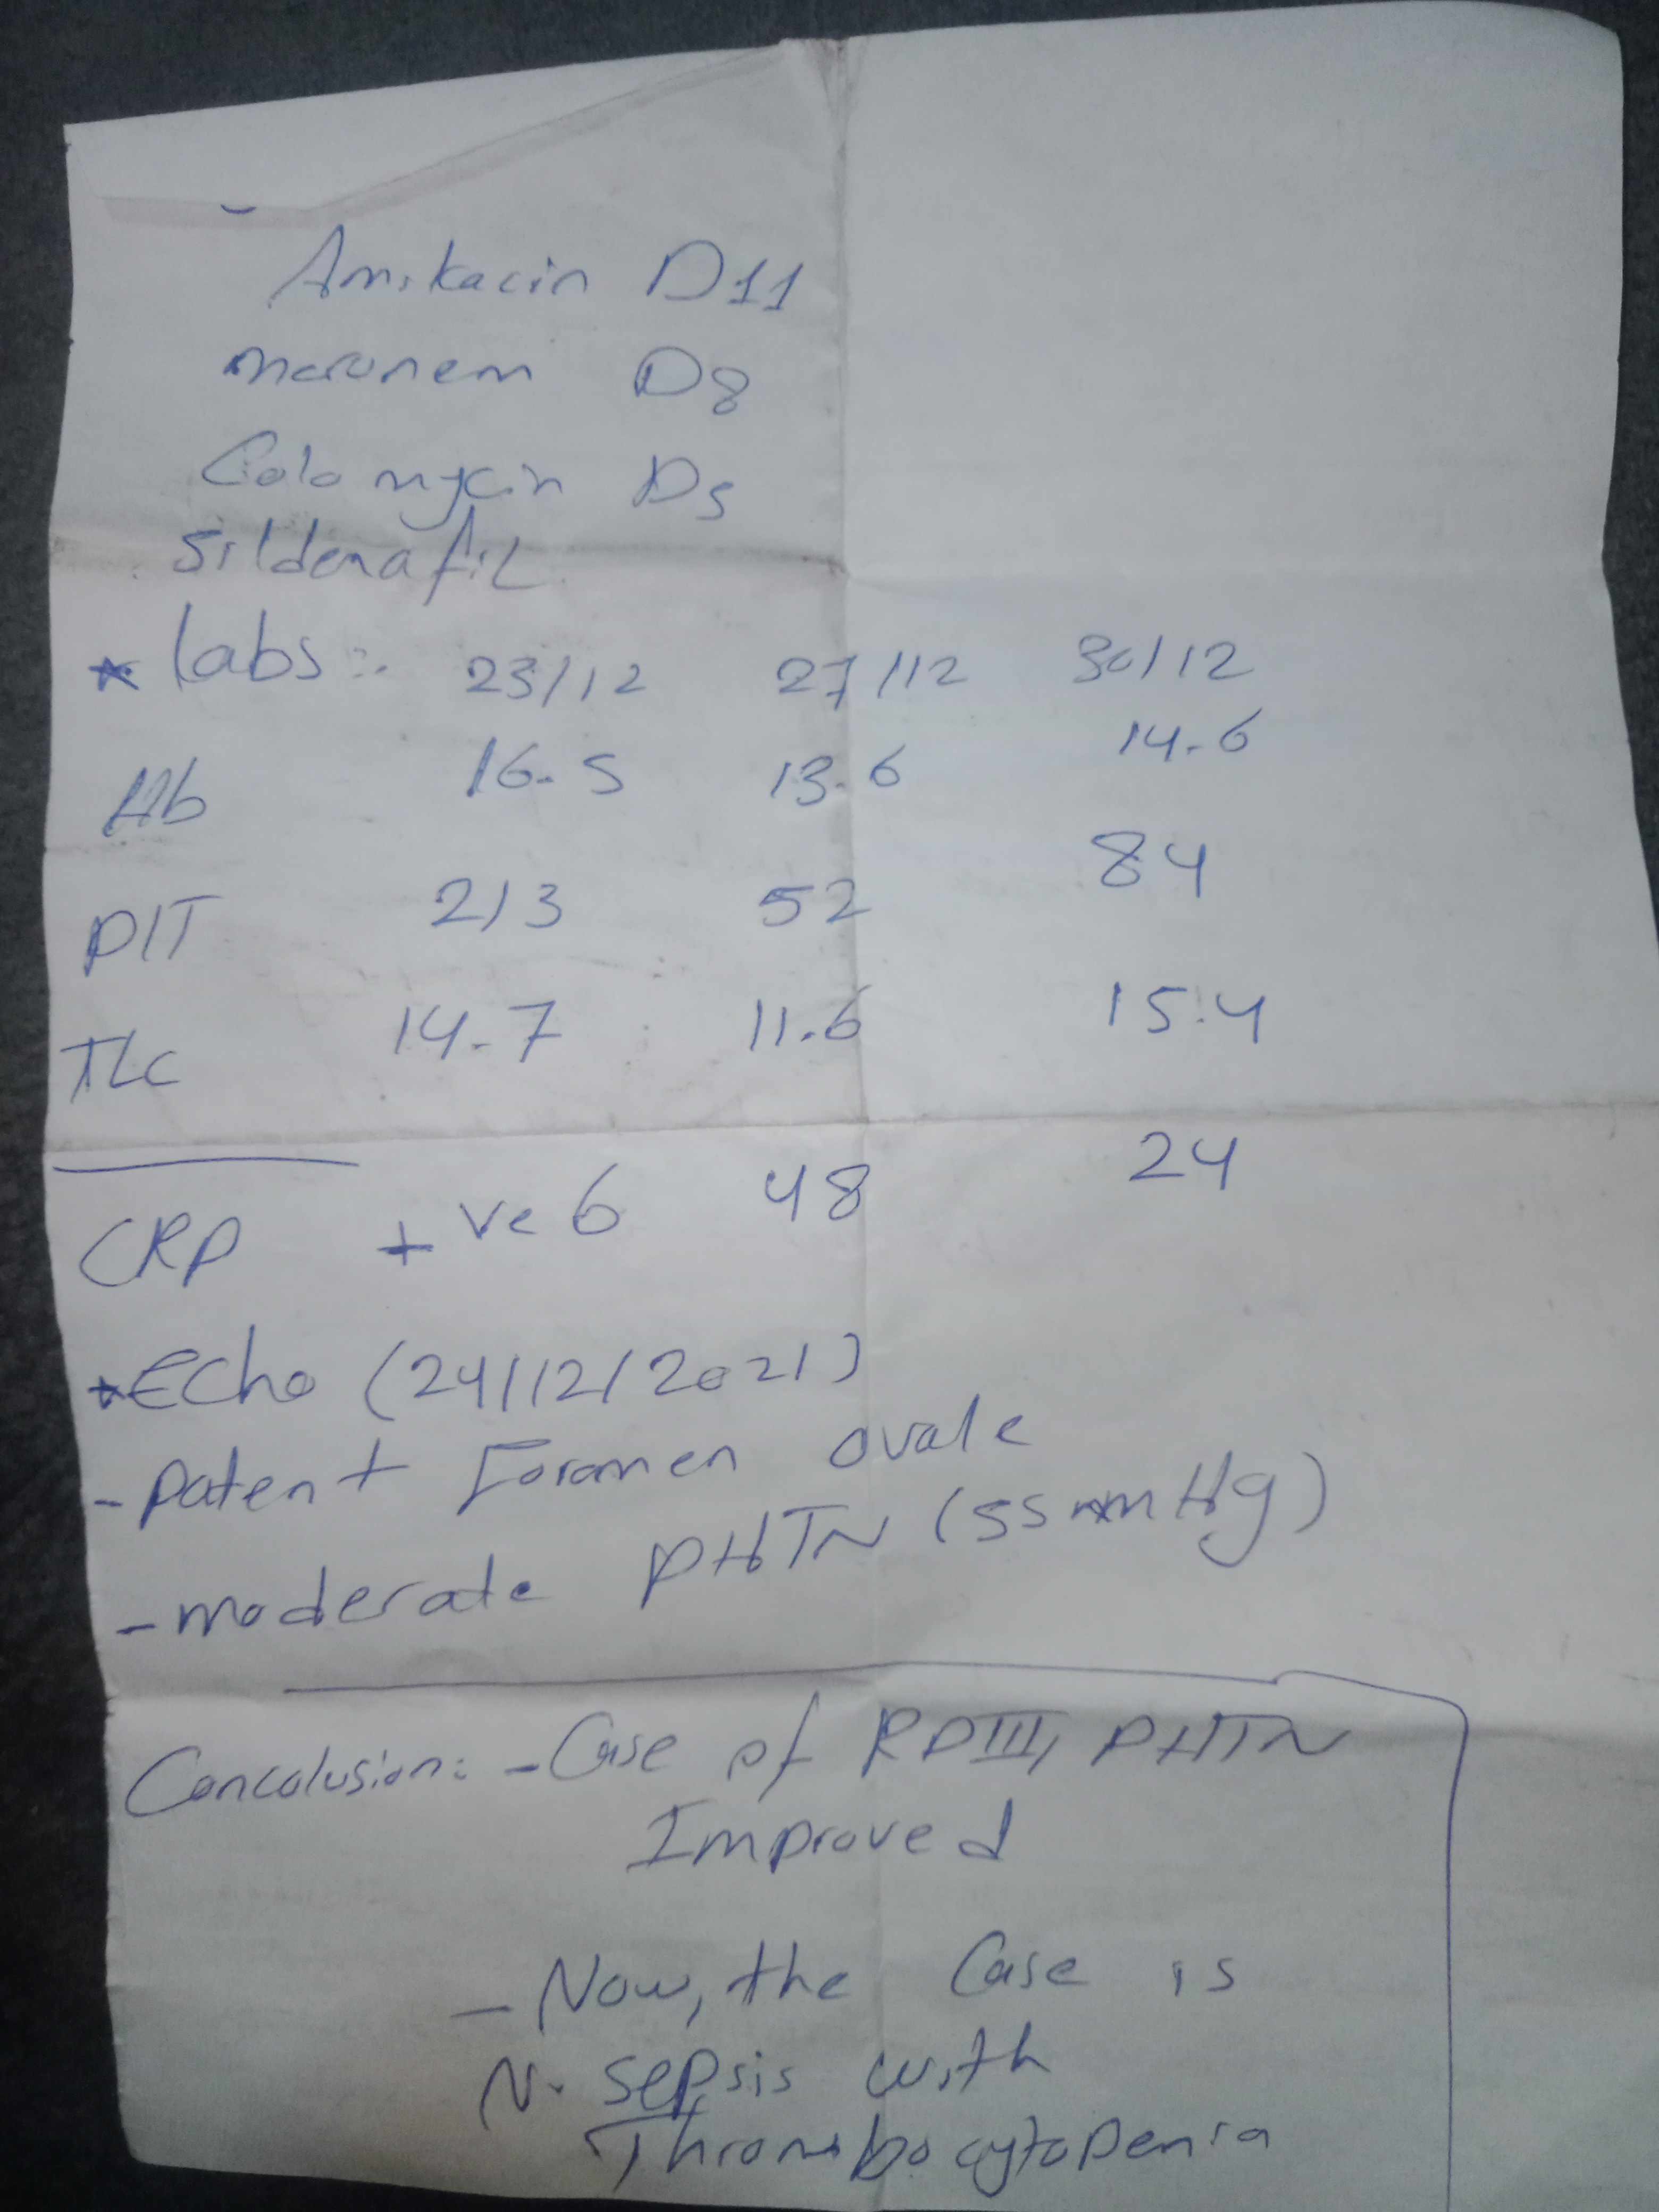 Amikacin D11
meronem D8
Colomycin D5
Sildenafil
* labs:- 23/12 27/12 30/12
Hb 16.5 13.6 14.6
PlT 213 52 84
TLC 14.7 11.6 15.4
CRP +ve 6 48 24
* Echo (24/12/2021)
- Patent Foramen ovale
- moderate PHTN (55 mmHg)
Concolusion: - Case of RDIII, PHTN
Improved
- Now, the Case is
N. sepsis with
Thrombocytopenia